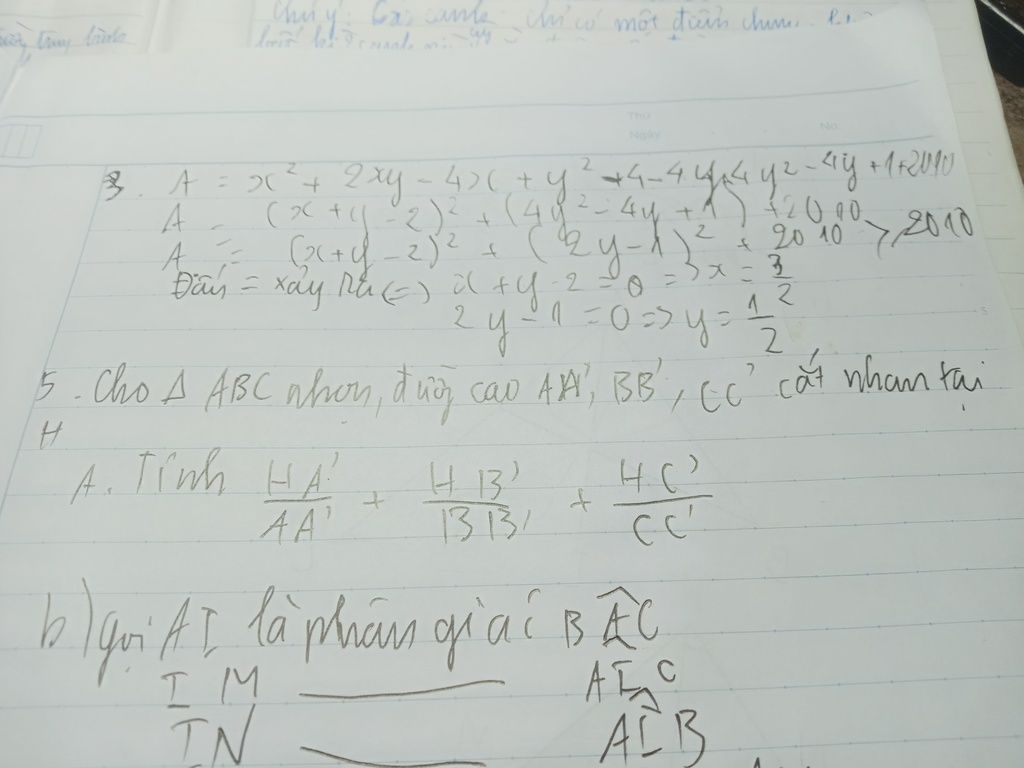 Chú ý:
Thứ
Ngày
No.
3. A = x² + 2xy - 4x + y² + 4 - 4y + 4y² - 4y + 1 + 2010
A = (x + y - 2)² + (4y² - 4y + 1) + 2010
A = (x + y - 2)² + (2y - 1)² + 2010 ⩾ 2010
Dấu = xảy ra (=) x + y - 2 = 0 => x = 3/2
2y - 1 = 0 => y = 1/2
5. Cho Δ ABC nhọn, đường cao AA', BB', CC' cắt nhau tại
H
A. Tính HA'/AA' + HB'/BB' + HC'/CC'
b) gọi AI là phân giác BÂC
IM ——— AIC
IN ——— AÎB